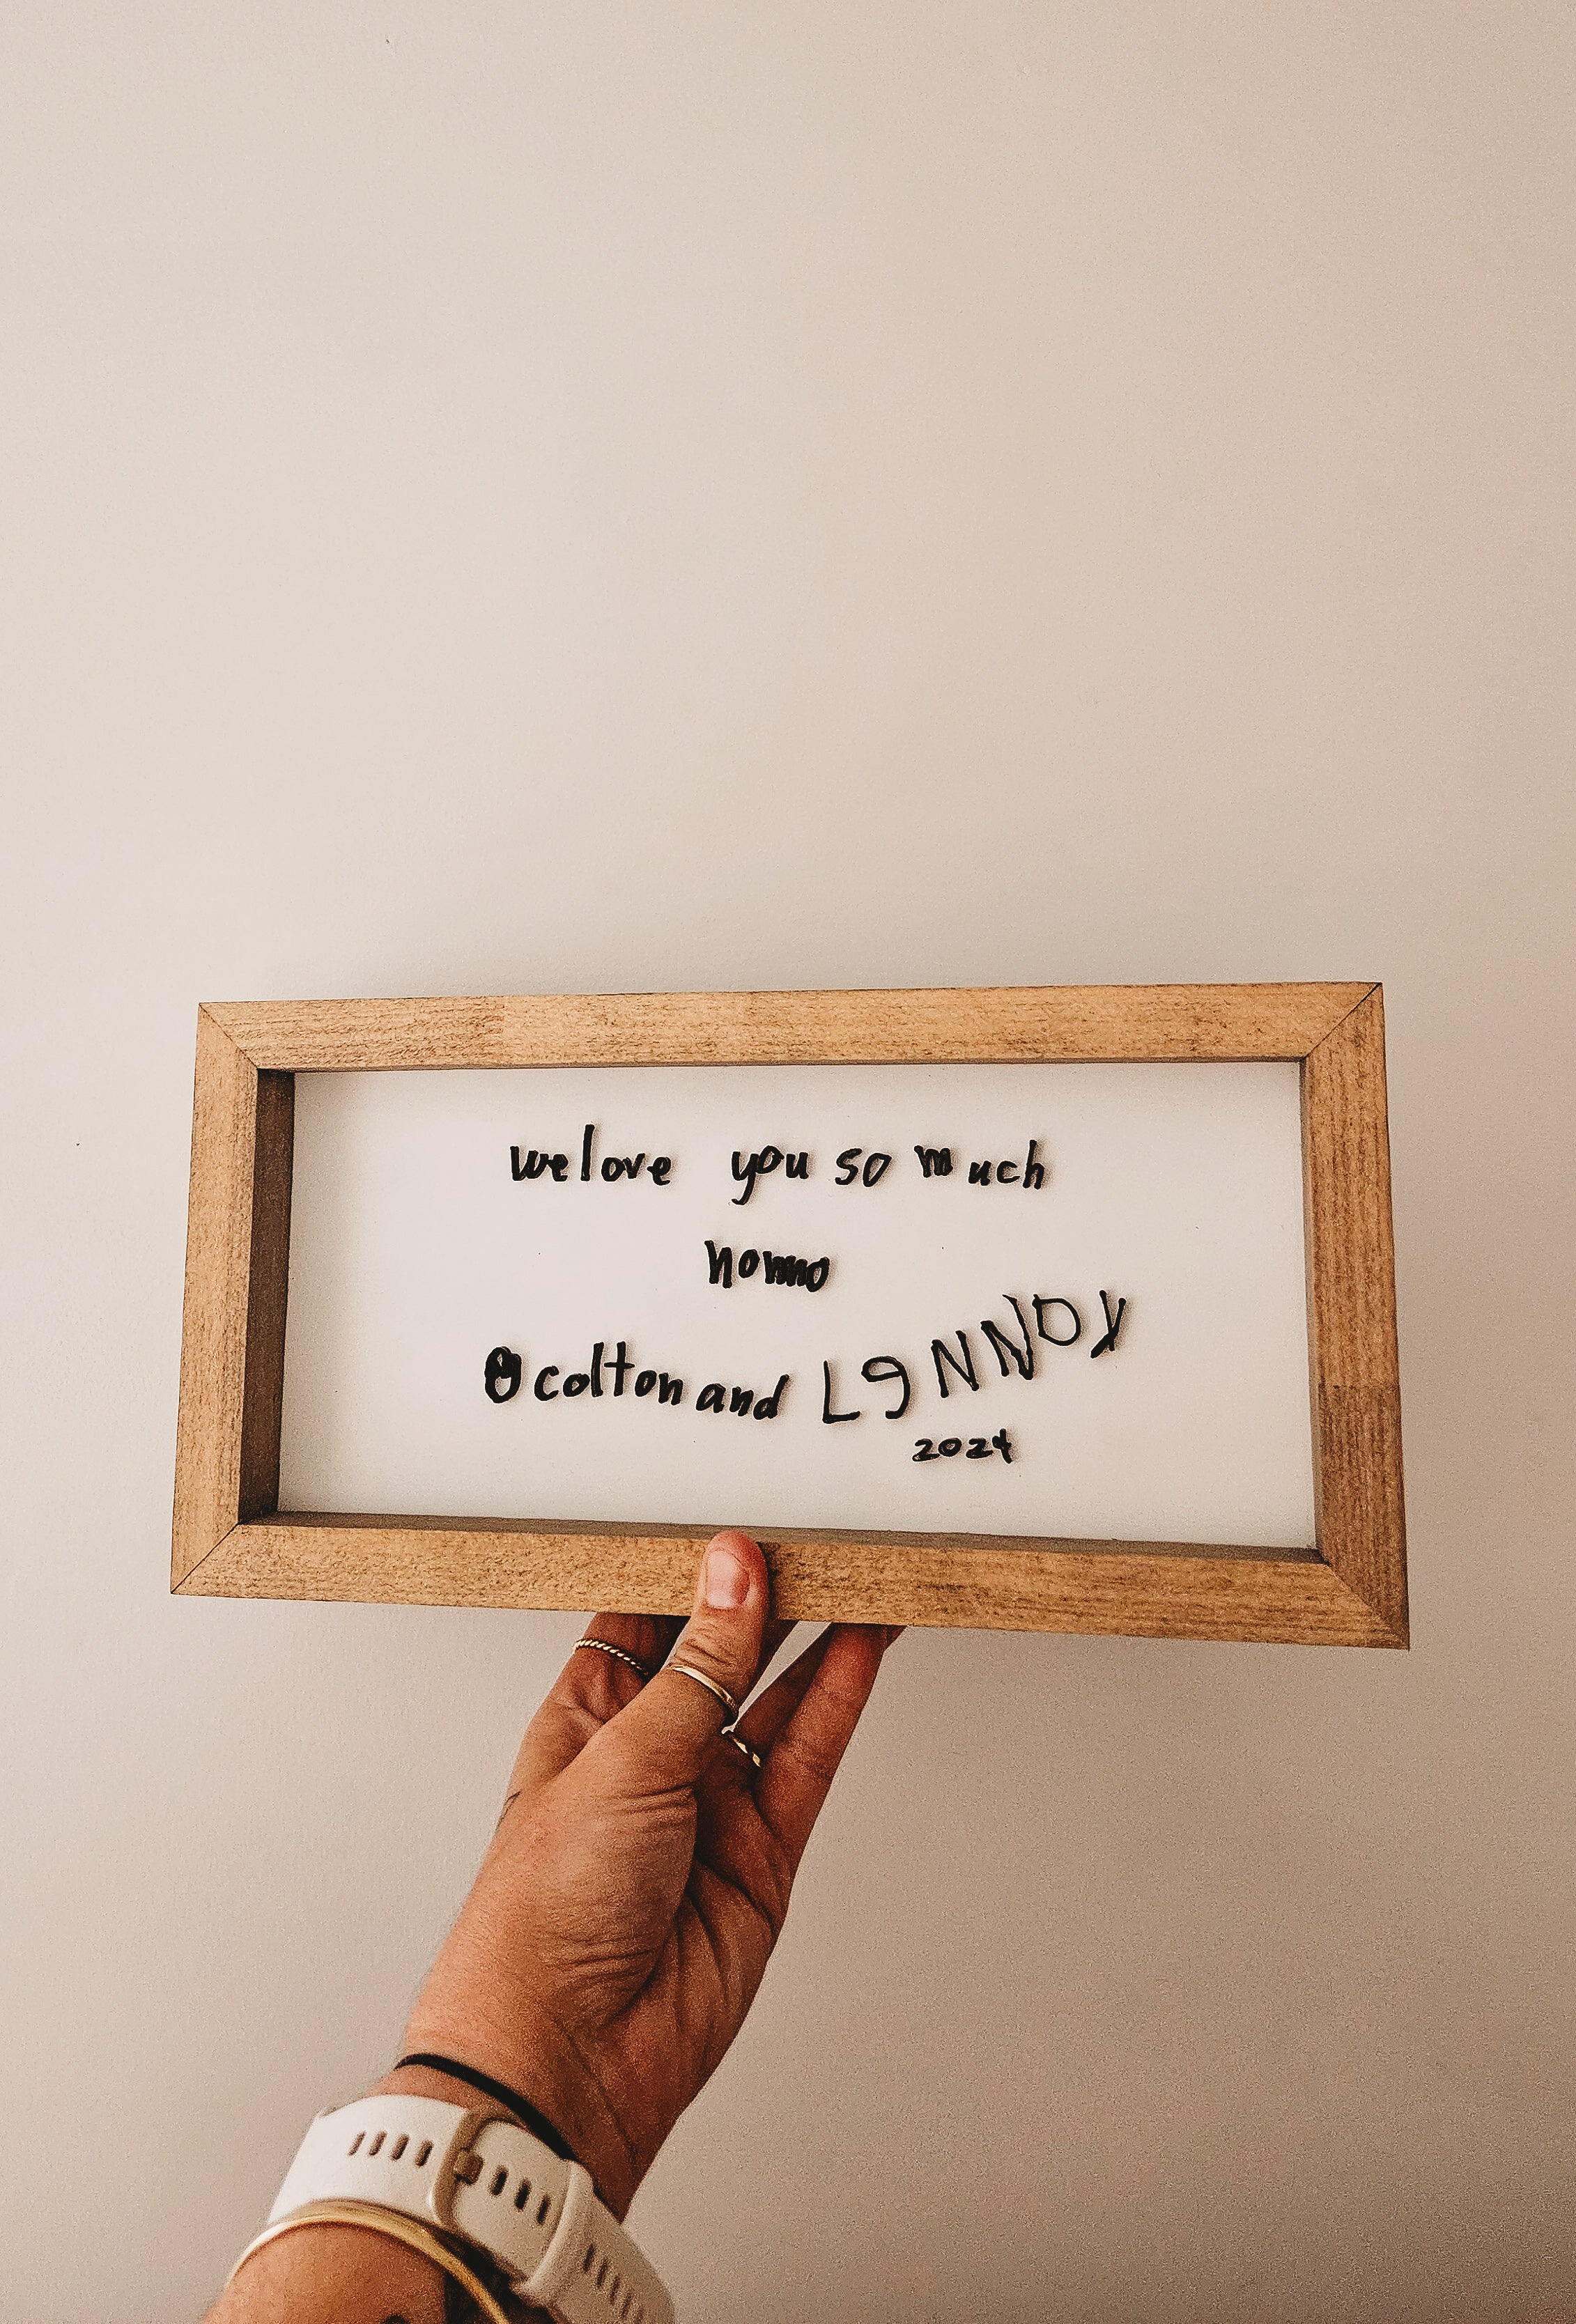 we love you so much
nonno
colton and LeNNOX
2024